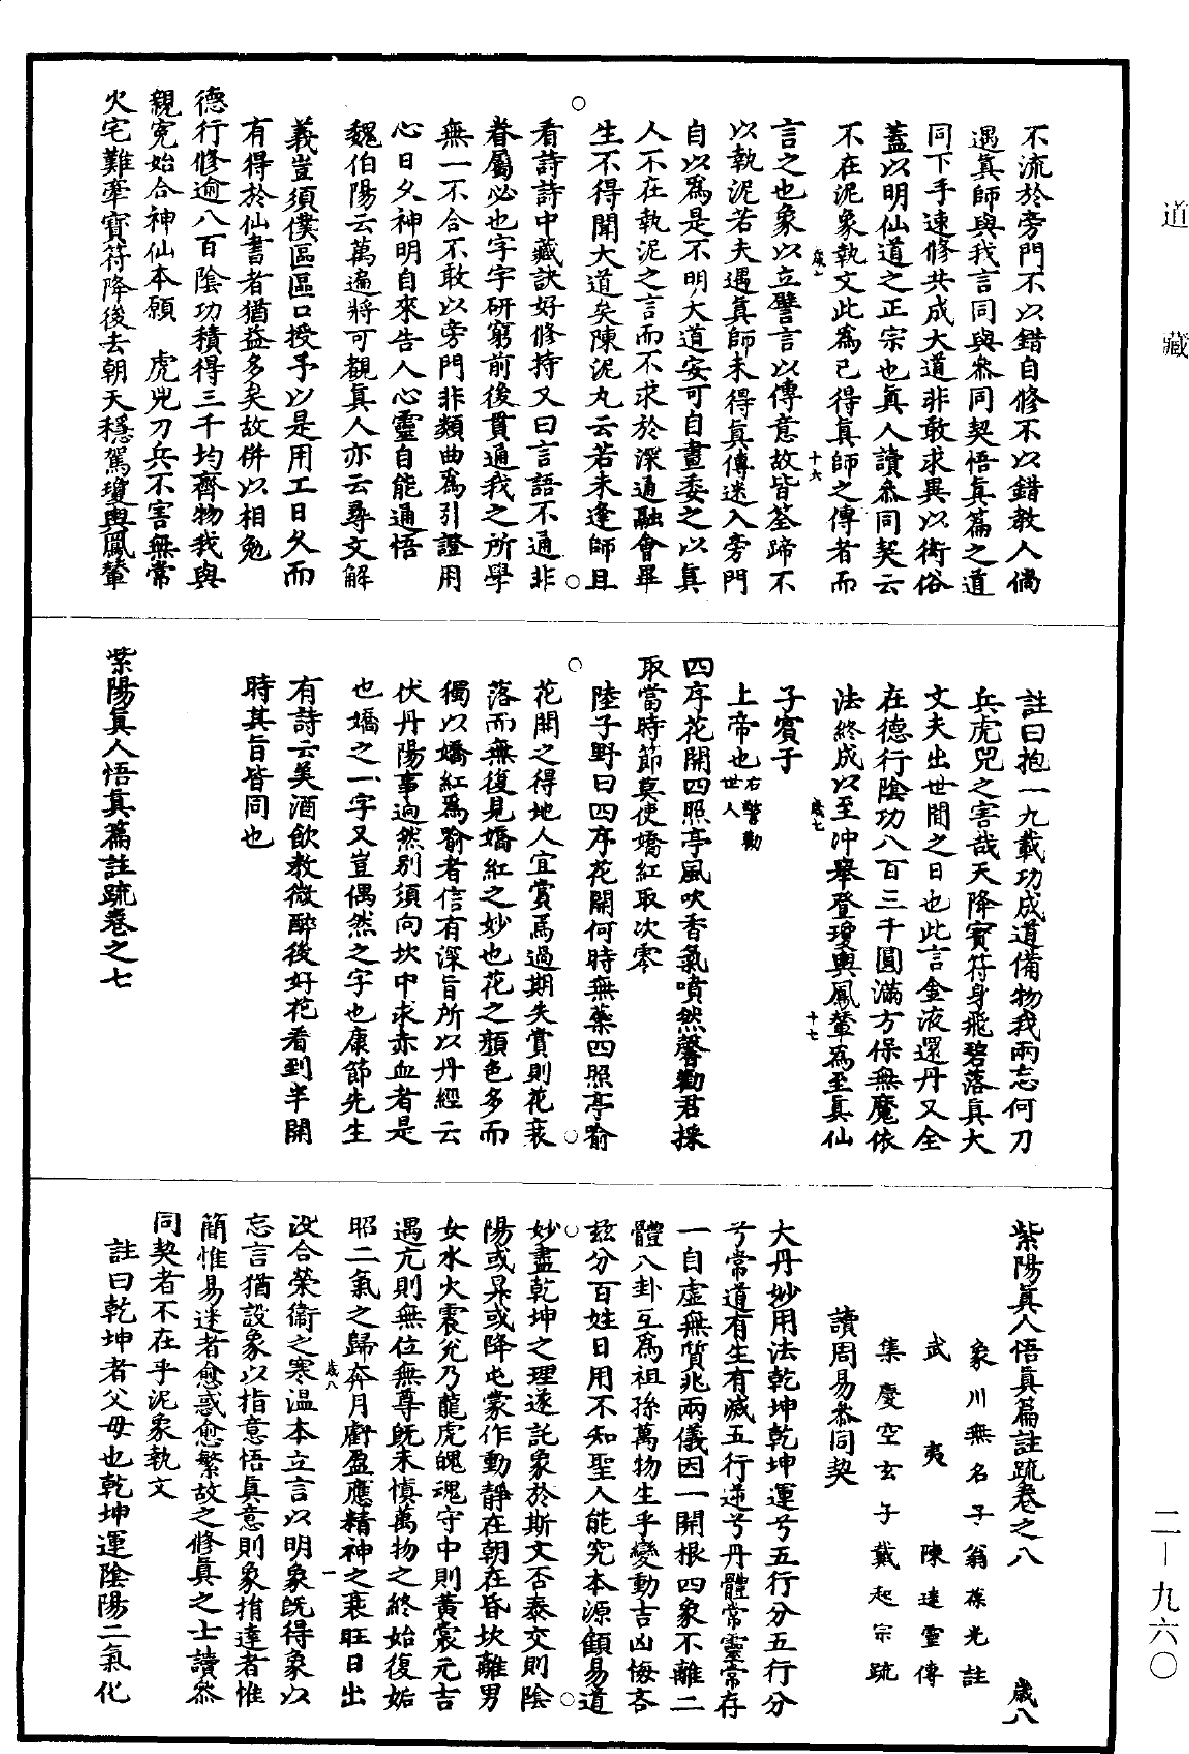 道藏
不流於旁門不以錯自修不以錯教人倘
遇眞師與我言同與叅同契悟眞篇之道
同下手速修共成大道非敢求異以衒俗
蓋以明仙道之正宗也眞人讀叅同契云
不在泥象執文此爲已得眞師之傳者而
歲七
十六
言之也象以立譬言以傳意故皆筌蹄不
以執泥若夫遇眞師未得眞傳迷入旁門
自以爲是不明大道安可自畫委之以眞
人不在執泥之言而不求於深通融會畢
生不得聞大道矣陳泥丸云若未逢師且
看詩詩中藏訣好修持又曰言語不通非
眷屬必也字字研窮前後貫通我之所學
無一不合不敢以旁門非類曲爲引證用
心日久神明自來告人心靈自能通悟
魏伯陽云萬遍將可覩眞人亦云尋文解
義豈須僕區區口授予以是用工日久而
有得於仙書者猶益多矣故併以相勉
德行修逾八百陰功積得三千均齊物我與
親寃始合神仙本願　虎兕刀兵不害無常
火宅難牽寳符降後去朝天穩駕瓊輿鳳輦
註曰抱一九載功成道備物我兩忘何刀
兵虎兕之害哉天降寳符身飛碧落眞大
丈夫出世間之日也此言金液還丹又全
在德行陰功八百三千圓滿方保無魔依
法終成以至冲舉登瓊輿鳳輦爲至眞仙
歲七
十七
子賓于
上帝也右警勸世人
四序花開四照亭風吹香氣噴然馨勸君採
取當時節莫使嬌紅取次零
陸子野曰四序花開何時無藥四照亭喻
花開之得地人宜賞焉過期失賞則花衰
落而無復見嬌紅之妙也花之顏色多而
獨以嬌紅爲喻者信有深旨所以丹經云
伏丹陽事逈然别須向坎中求赤血者是
也嬌之一字又豈偶然之字也康節先生
有詩云美酒飲教微醉後好花看到半開
時其旨皆同也
紫陽眞人悟眞篇註疏卷之七
紫陽眞人悟眞篇註疏卷之八　歲八
象川無名子翁葆光註
武夷陳達靈傳
集慶空玄子戴起宗疏
讀周易叅同契
大丹妙用法乾坤乾坤運兮五行分五行分
兮常道有生有滅五行逆兮丹體常靈常存
一自虛無質兆兩儀因一開根四象不離二
體八卦互爲祖孫萬物生乎變動吉凶悔吝
兹分百姓日用不知聖人能究本源顧易道
妙盡乾坤之理遂託象於斯文否泰交則陰
陽或昇或降屯蒙作動靜在朝在昏坎離男
女水火震兊乃龍虎魄魂守中則黃裳元吉
遇亢則無位無尊既未慎萬物之終始復姤
昭二氣之歸奔月虧盈應精神之衰旺日出
歲八
一
沒合榮衞之寒溫本立言以明象既得象以
忘言猶設象以指意悟眞意則象捐達者惟
簡惟易迷者愈惑愈繁故之修眞之士讀叅
同契者不在乎泥象執文
註曰乾坤者父母也乾坤運陰陽二氣化
二—九六〇